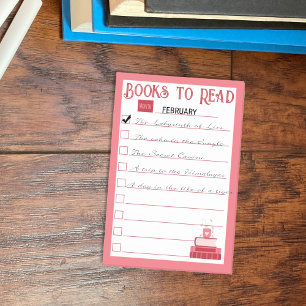 BOOKS TO READ
MONTH FEBRUARY
The Labyrinth of Lies
The
The Secret Canvas
A trip to the Himalayas
A day in the life of a